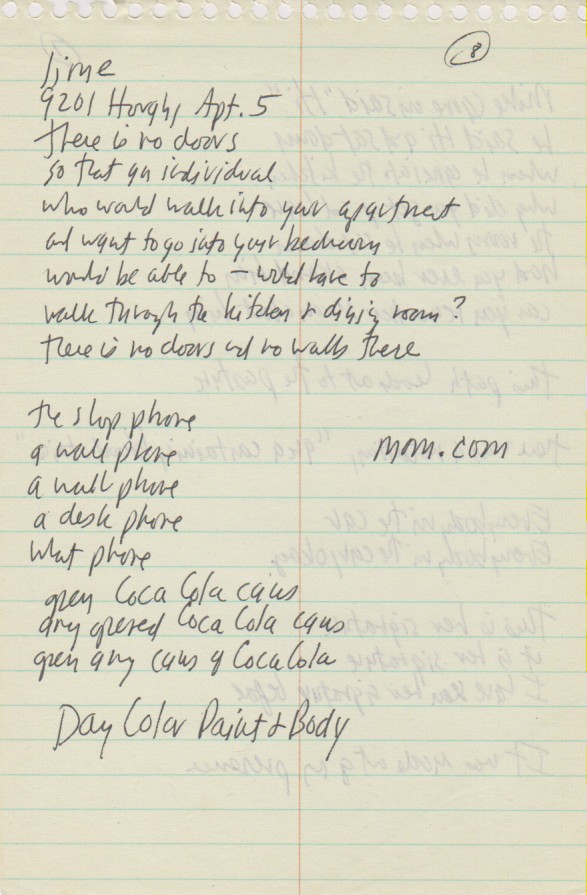 8
lime
9201 Hough, Apt. 5
there is no doors
so that an individual
who would walk into your apartment
and want to go into your bedroom
would be able to – would have to
walk through the kitchen & dining room?
there is no doors and no walls there
the shop phone
a wall phone
mom.com
a wall phone
a desk phone
what phone
open Coca Cola cans
any opened Coca Cola cans
open any cans of Coca Cola
Day Color Paint & Body